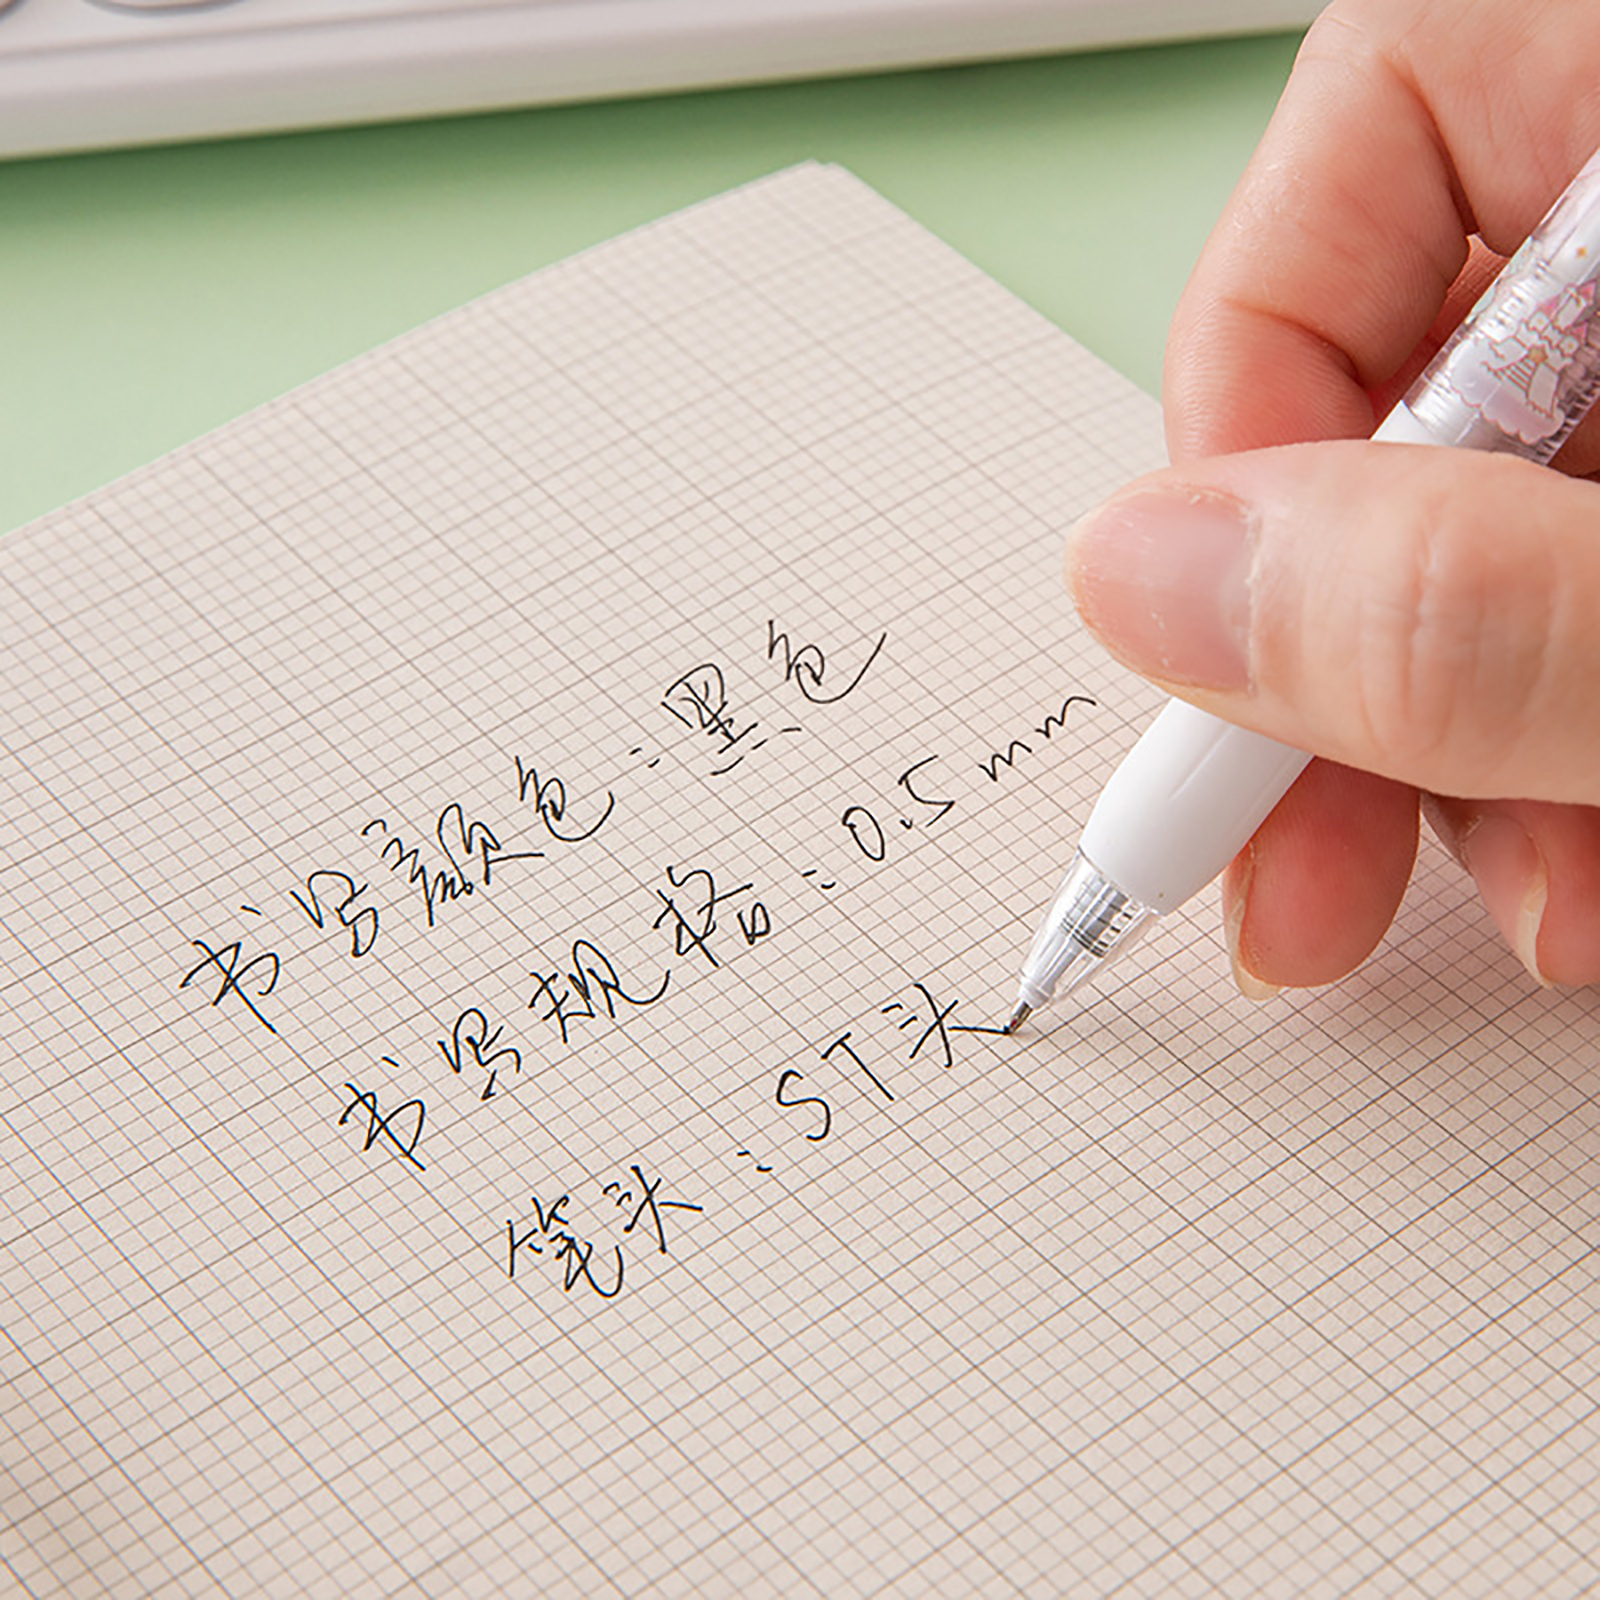 书写颜色：黑色
书写规格：0.5mm
笔头：ST头